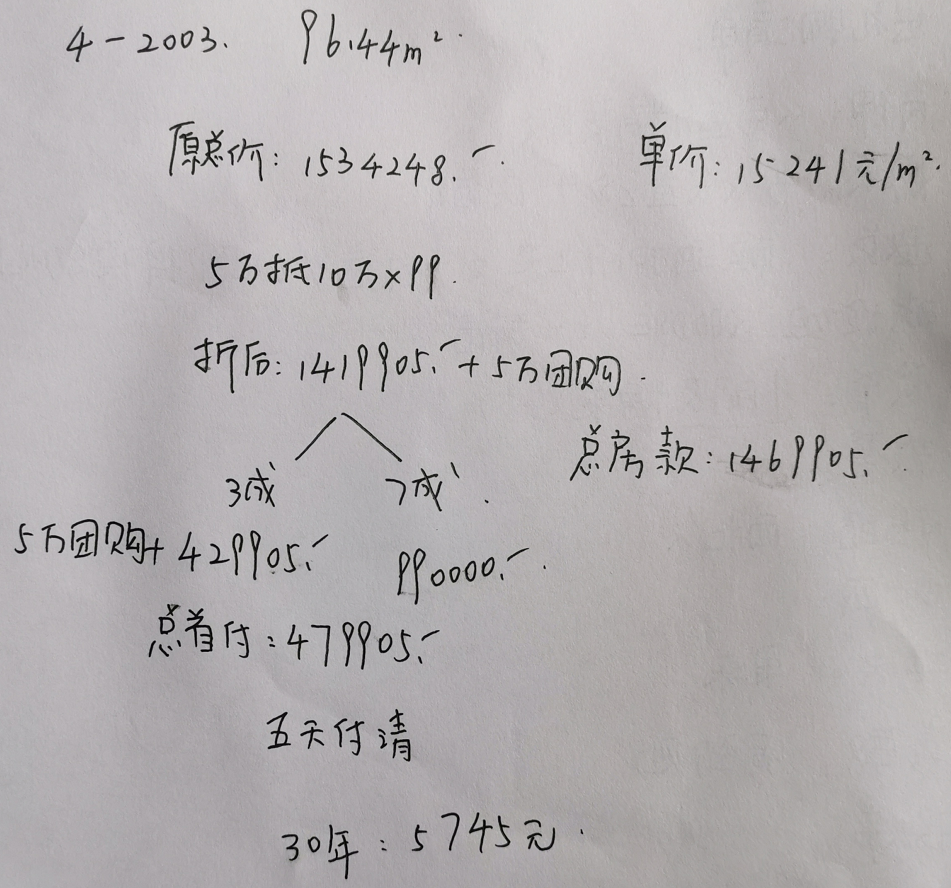 4-2003. 96.44m²
原总价: 1534248.- 单价: 15241元/m².
5万抵10万×99.
折后: 1419905.- + 5万团购.
总房款: 1469905.-
3成 7成.
5万团购+ 429905.- 990000.-
总首付: 479905.-
五天付清
30年: 5745元.